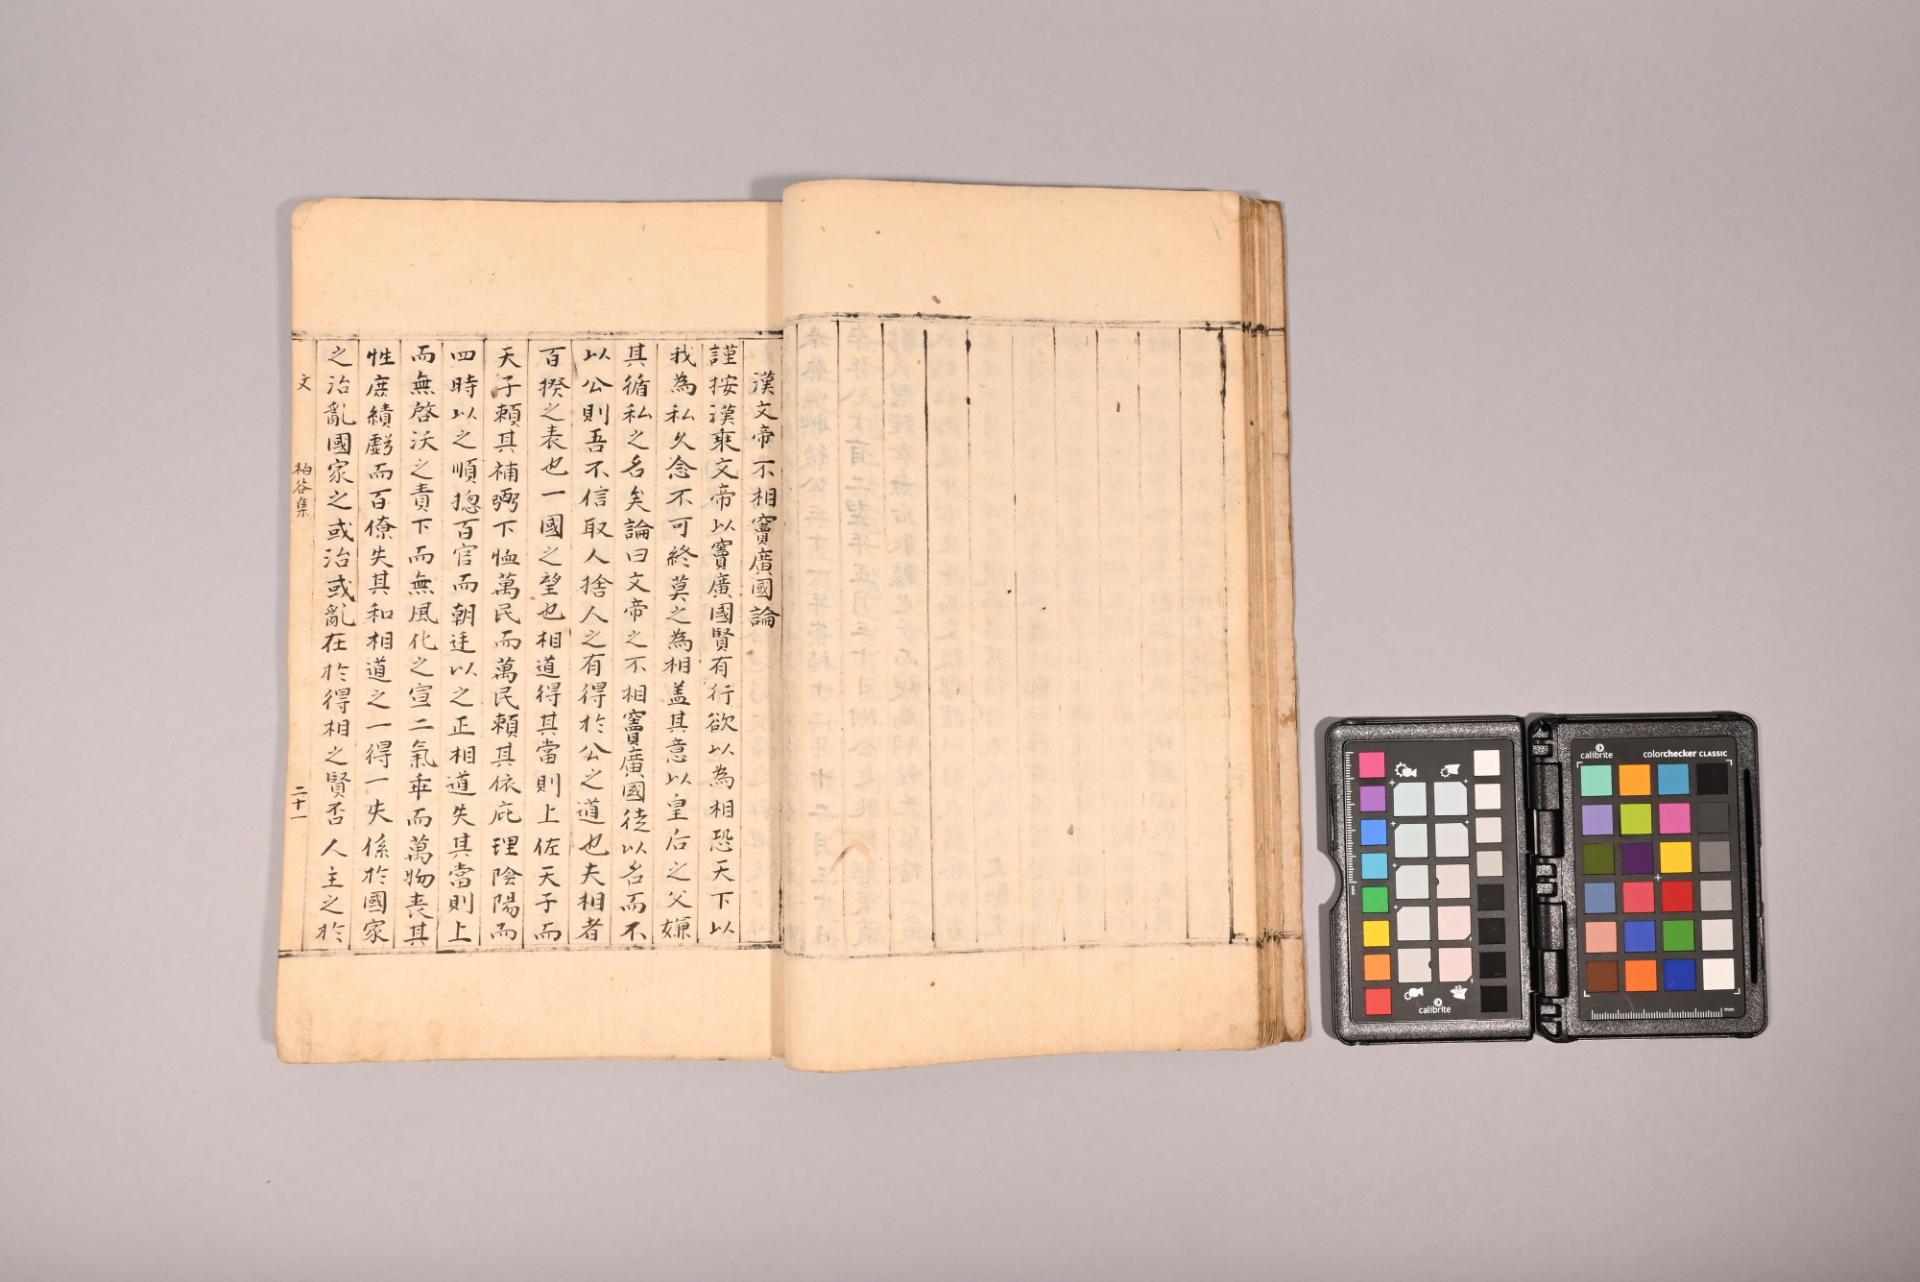 漢文帝不相竇廣國論
謹按漢乘文帝以竇廣國賢有行欲以為相恐天下以
我為私久念不可終莫之為相盖其意以皇后之父嫌
其循私之名矣論曰文帝之不相竇廣國徒以名而不
以公則吾不信取人捨人之有得於公之道也夫相者
百揆之表也一國之望也相道得其當則上佐天子而
天子賴其補弼下恤萬民而萬民賴其依庇理陰陽而
四時以之順摠百官而朝廷以之正相道失其當則上
而無啓沃之責下而無風化之宣二氣乖而萬物喪其
性庶績虧而百僚失其和相道之一得一失係於國家
之治亂國家之或治或亂在於得相之賢否人主之於
文 柏谷集 二十一
calibrite
calibrite
colorchecker CLASSIC
mm